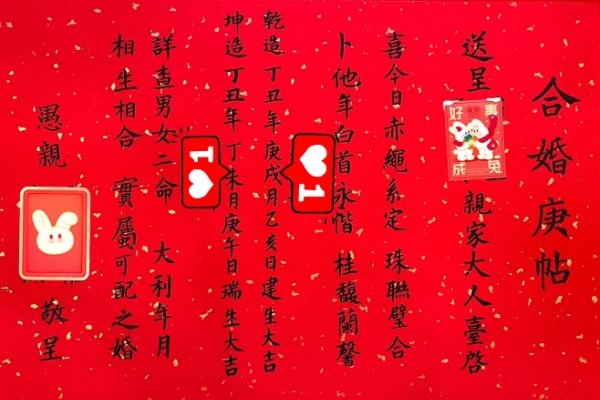 合婚庚帖
送呈 親家大人臺啓
好事成兔
喜今日赤繩系定 珠聯璧合
卜他年白首永偕 桂馥蘭馨
1
乾造丁丑年庚戌月乙亥日建生大吉
坤造丁丑年丁未日庚午日瑞生大吉
1
詳查男女二命 大利年月
相生相合 實屬可配之婚
愚親 敬呈